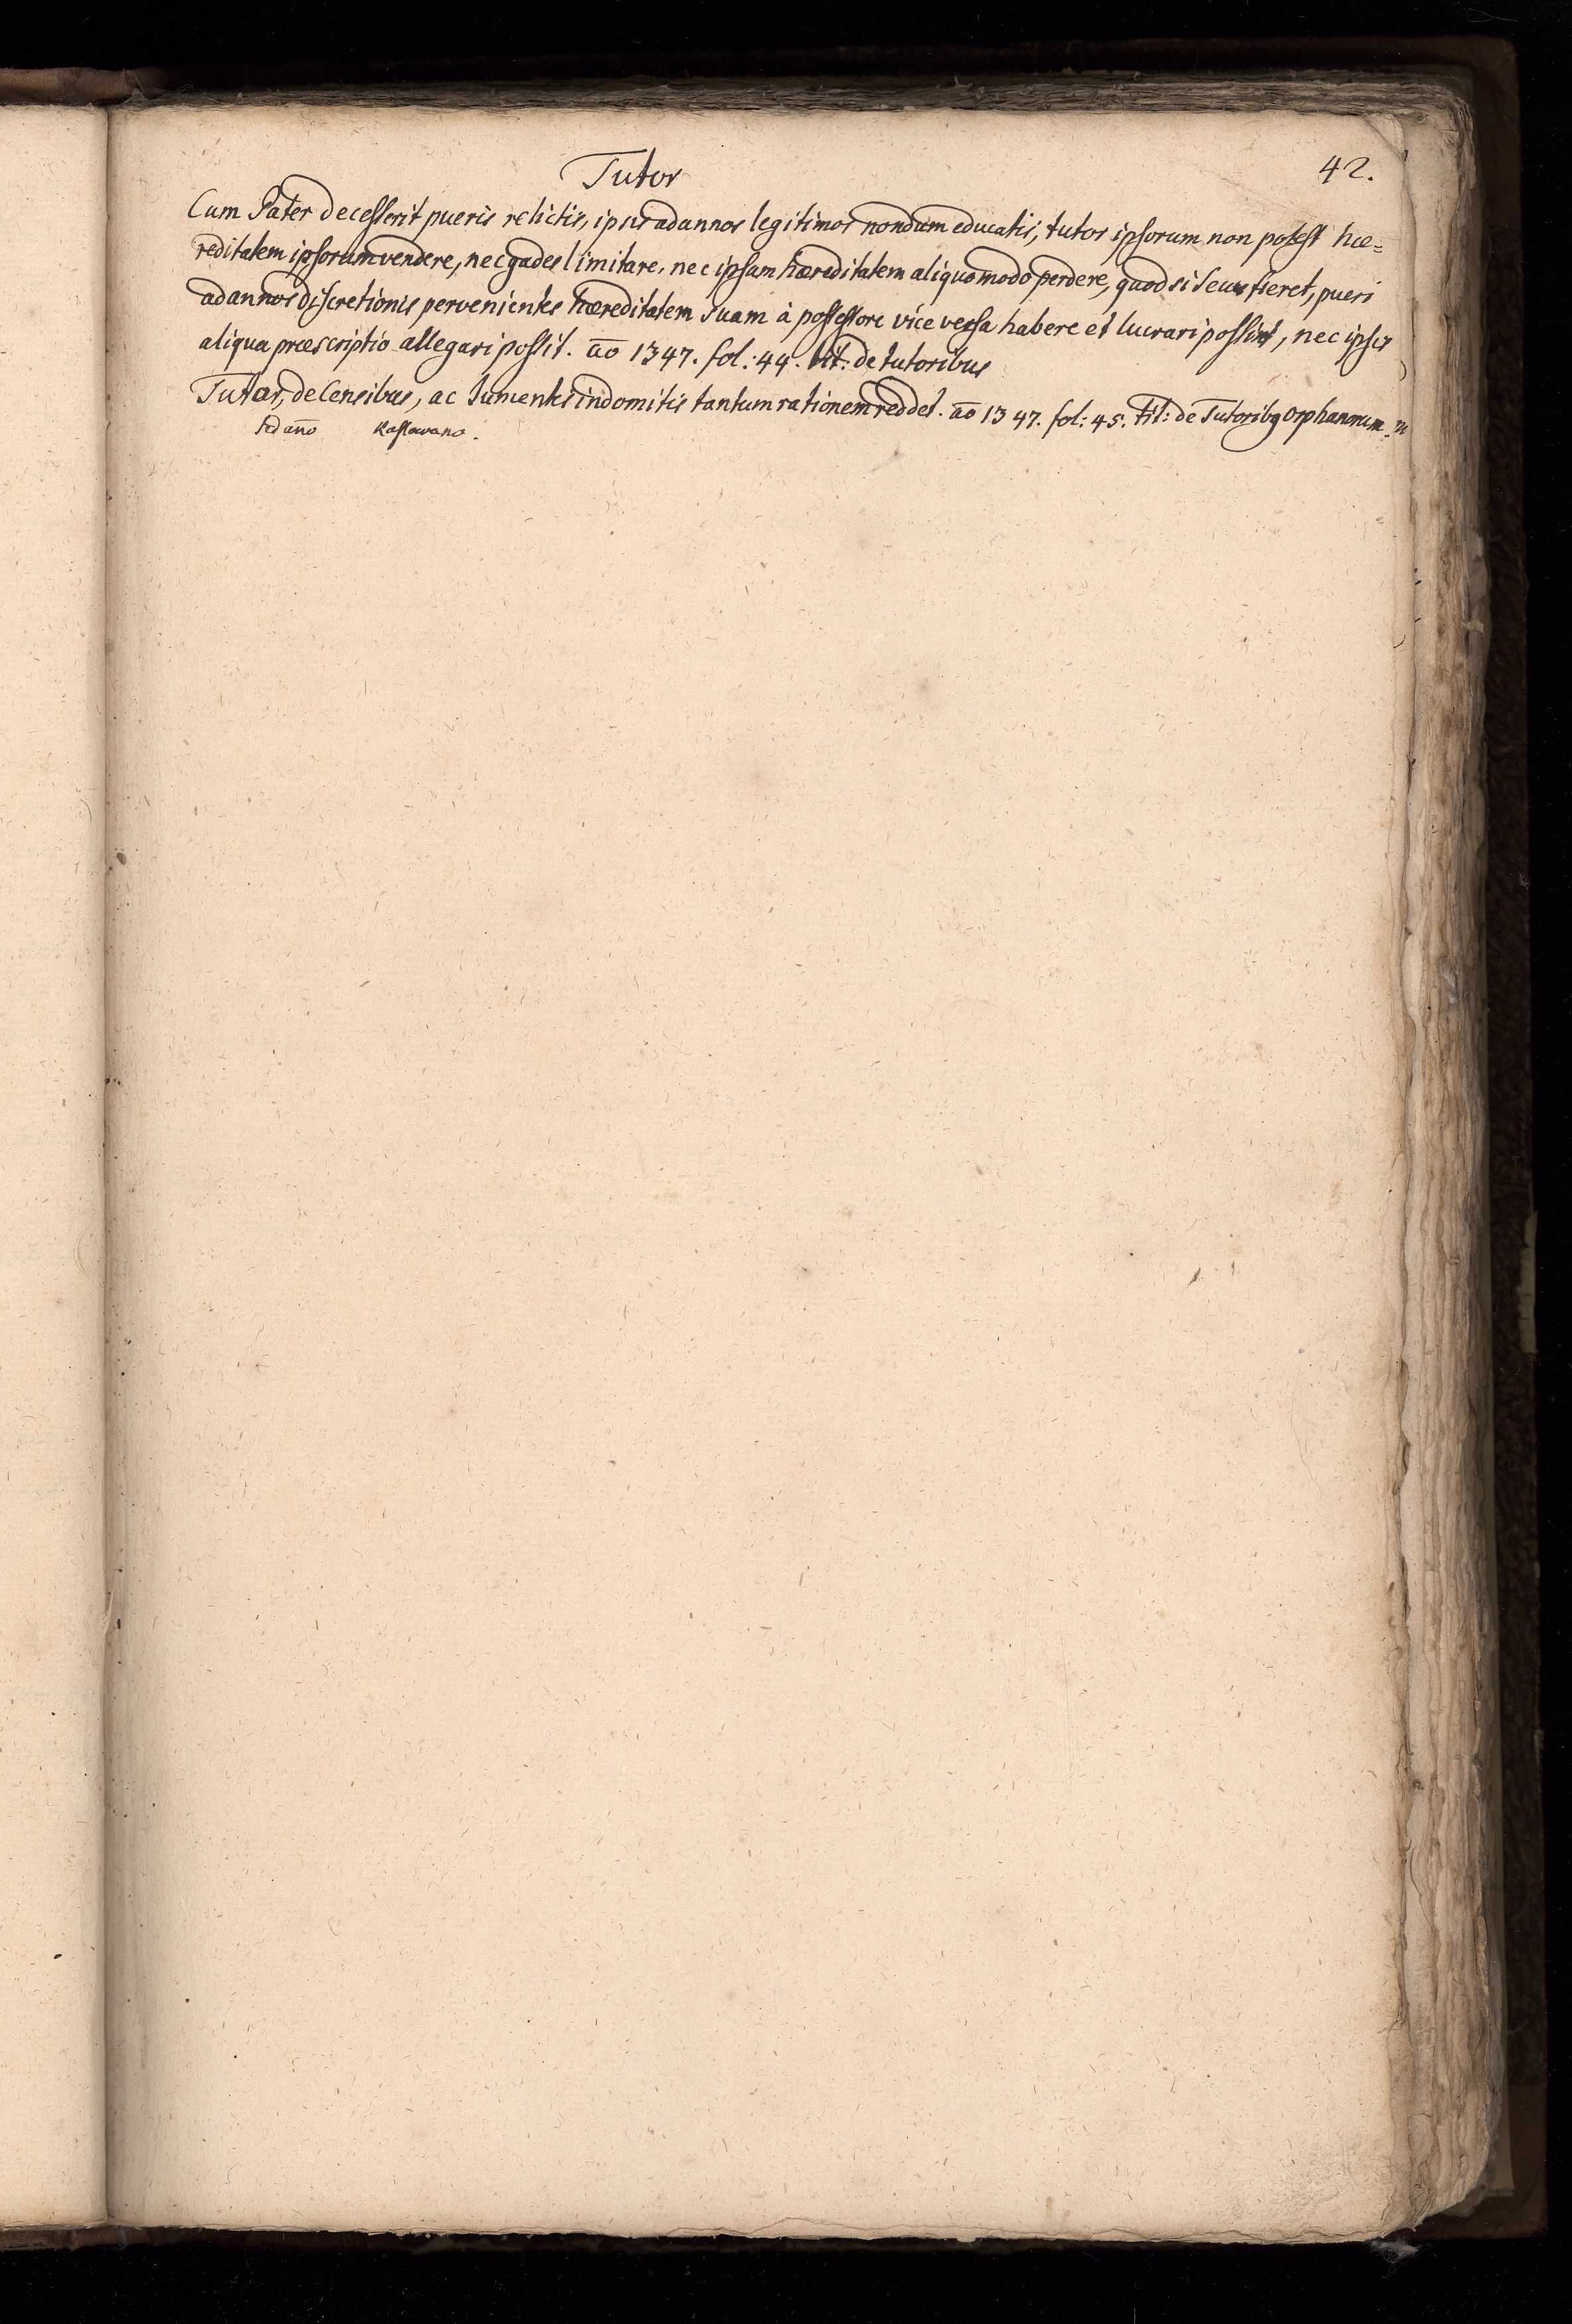 42.
Tutor
Cum Pater decesserit pueris relictis, ipsis ad annos legitimos nondum educatis, tutor ipsorum non potest hæ=
reditatem ipsorum vendere, nec gades limitare, nec ipsam hæreditatem aliquo modo perdere, quod si secus fieret, pueri
ad annos discretionis pervenientes hæreditatem suam à possessore vice versa habere et lucrari possint, nec ipsis
aliqua præscriptio allegari possit. año 1347. fol: 44. tit: de tutoribus
Tutor, de Censibus, ac Iumentis indomitis tantum rationem reddet. año 1347. fol: 45. tit: de Tutoribq Orphanorum.